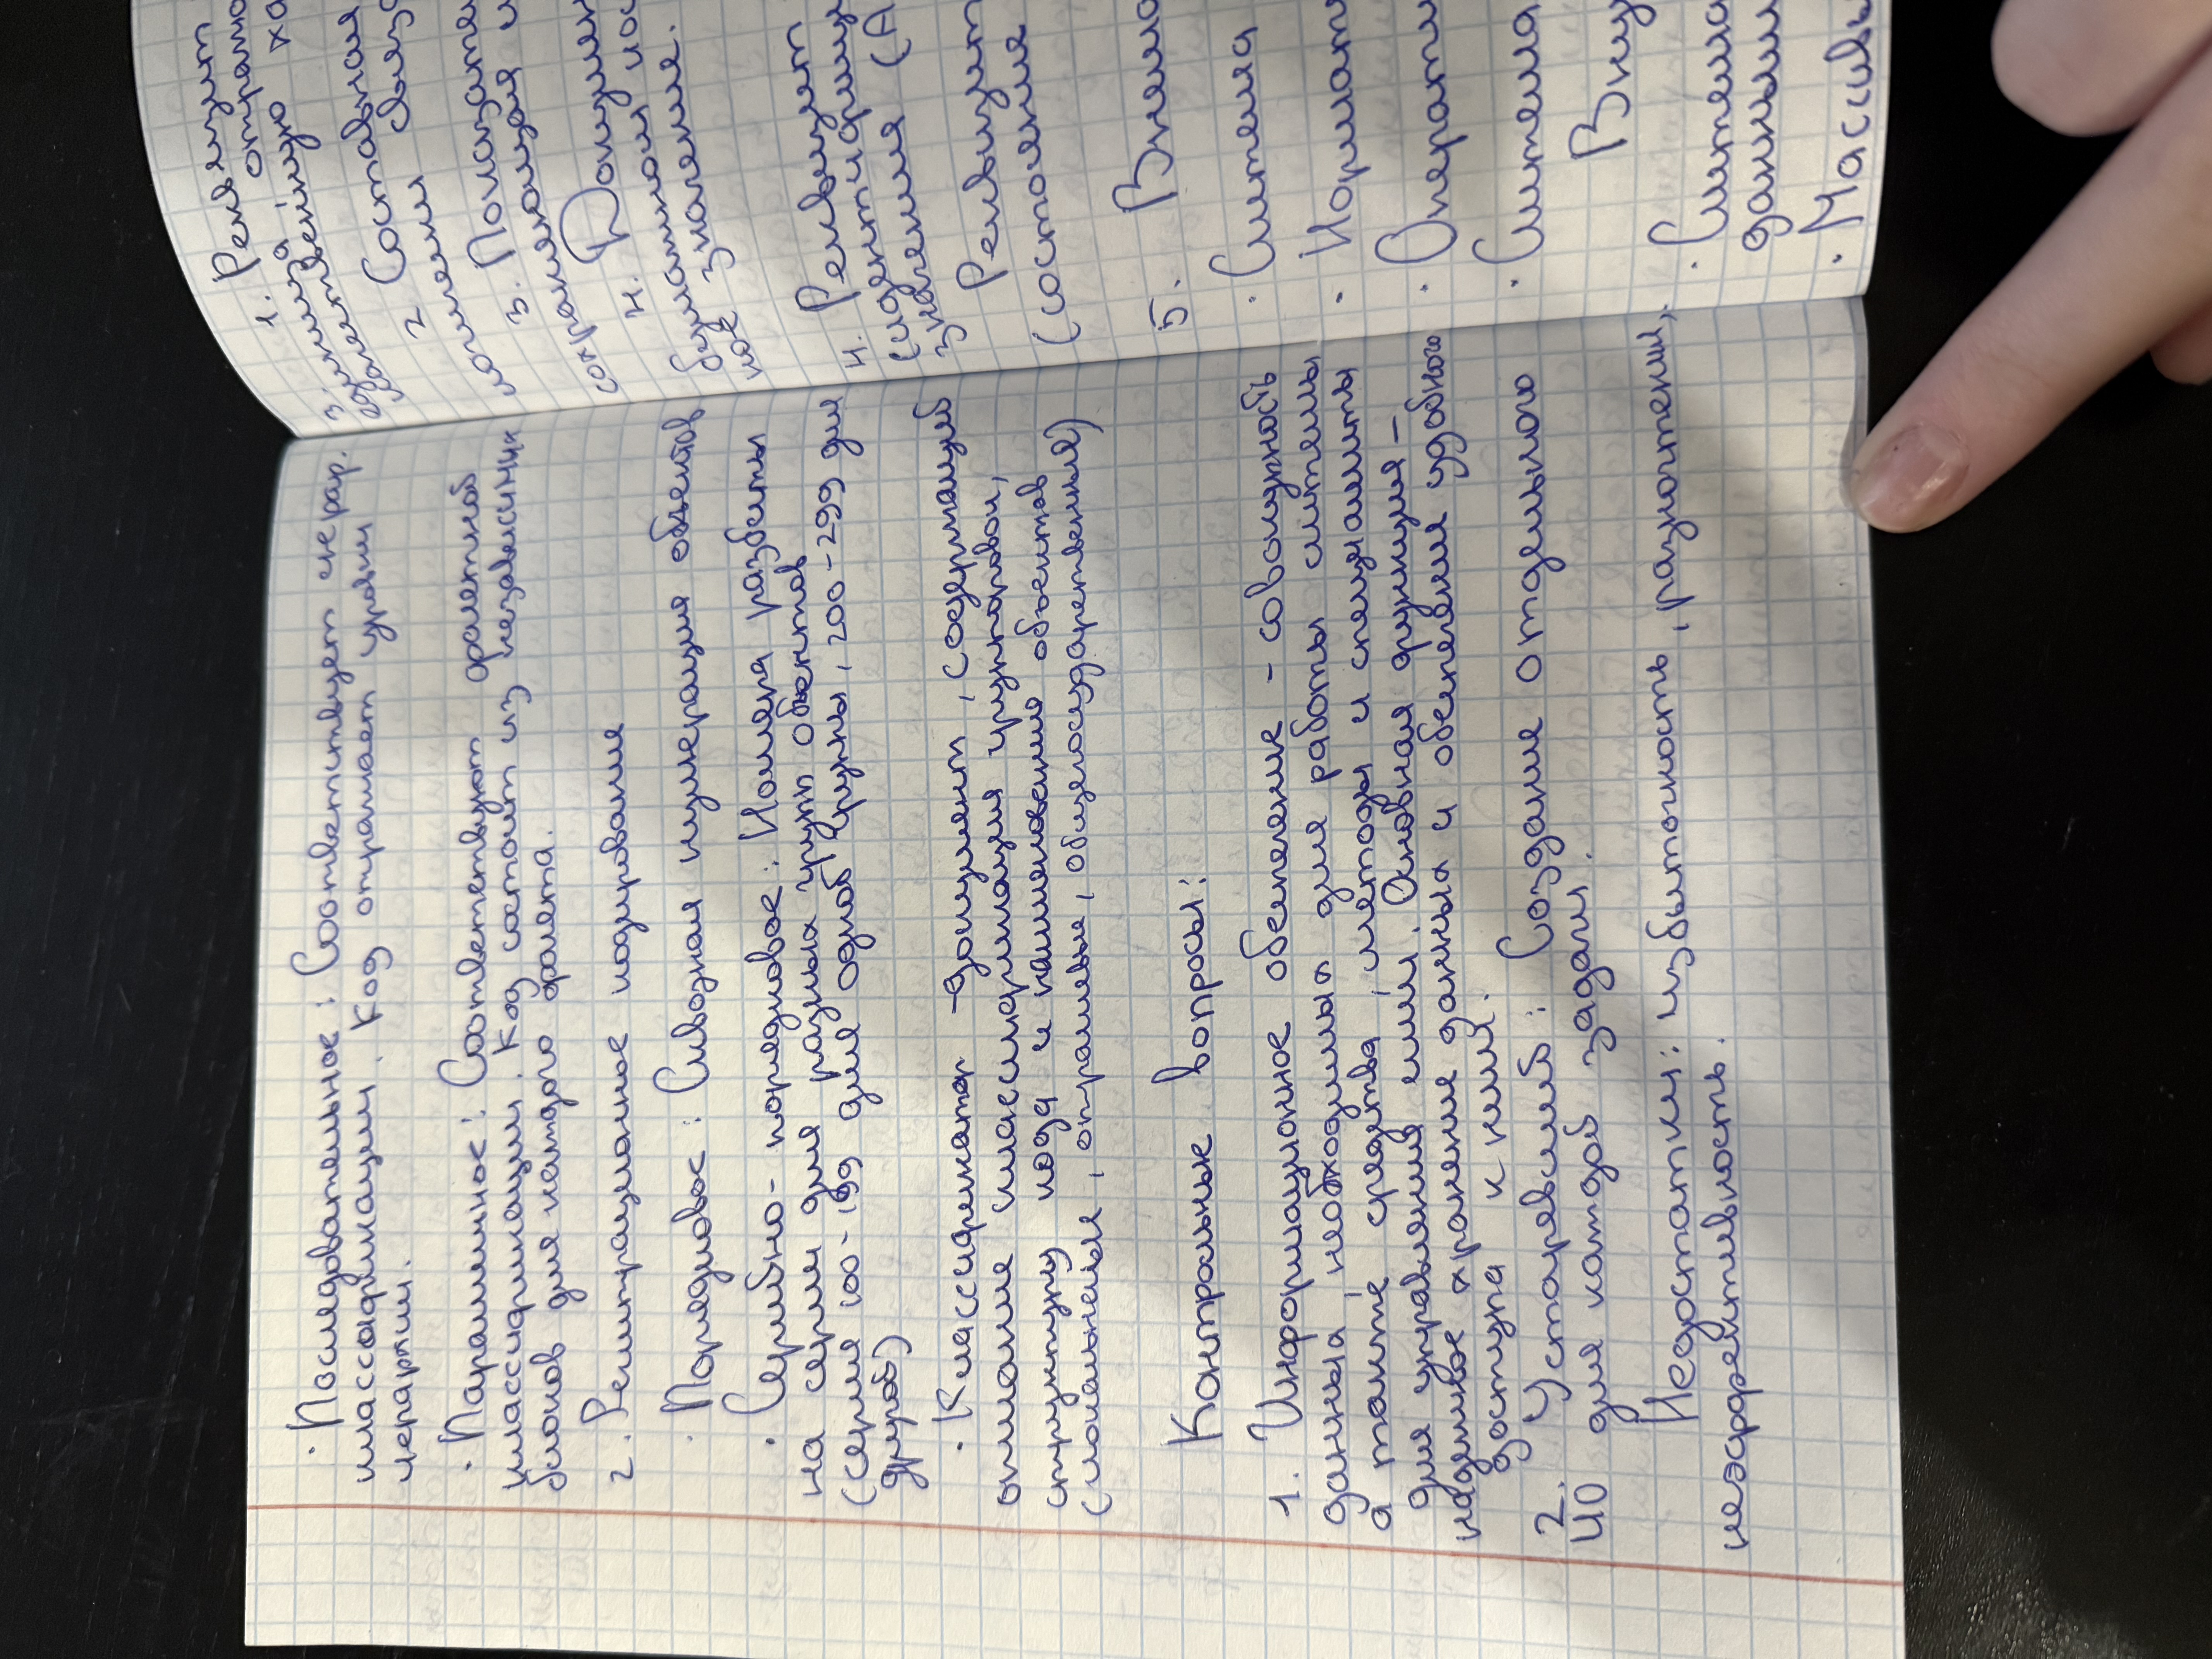 · Последовательное: Соответствует иерар.
классификации. Код отражает уровни
иерархии.
· Параллельное: Соответствует фасетной
классификации. Код состоит из независимых
блоков для каждого фасета.
2. Регистрационное кодирование
· Порядковое: Сквозная нумерация объектов
· Серийно-порядковое: Номера разбиты
на серии для разных групп объектов
(серия 100-199 для одной группы, 200-299 для
другой)
· Классификатор - документ, содержащий
описание классификация группировок,
структуру кода и наименование объектов
(локальные, отраслевые, общегосударственные)
Контрольные вопросы:
1. Информационное обеспечение - совокупность
данных, необходимых для работы системы
а также средства, методы и специалисты
для управления ими. Основная функция -
надежное хранение данных и обеспечение удобного
доступа к ним.
2. Устаревший: Создание отдельного
ИО для каждой задачи.
Недостатки: избыточность, разночтения,
неэффективность.
1. Реквизит
отражаю
ха
2 Составная
связ
3. Показате
4. Докумен
4. Реквизит
значения (А
Реквизит
(состояние
5. Внема
· Система
· Нормати
· Операти
· Система
Вну
· Система
данными
· Массивы